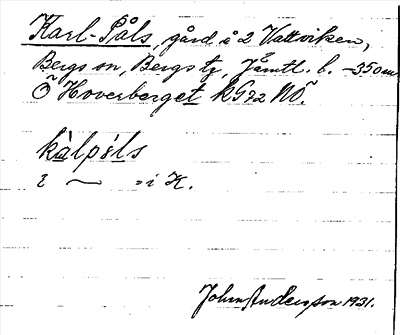 Karl-Påls, gård i 2 Vattviken,
Bergs sn, Bergs tg, Jämtl. l. -350m
Ö Hoverberget kG72 NÖ.
kàlpǻls
i ~ =i K.
John Anderson 1931.